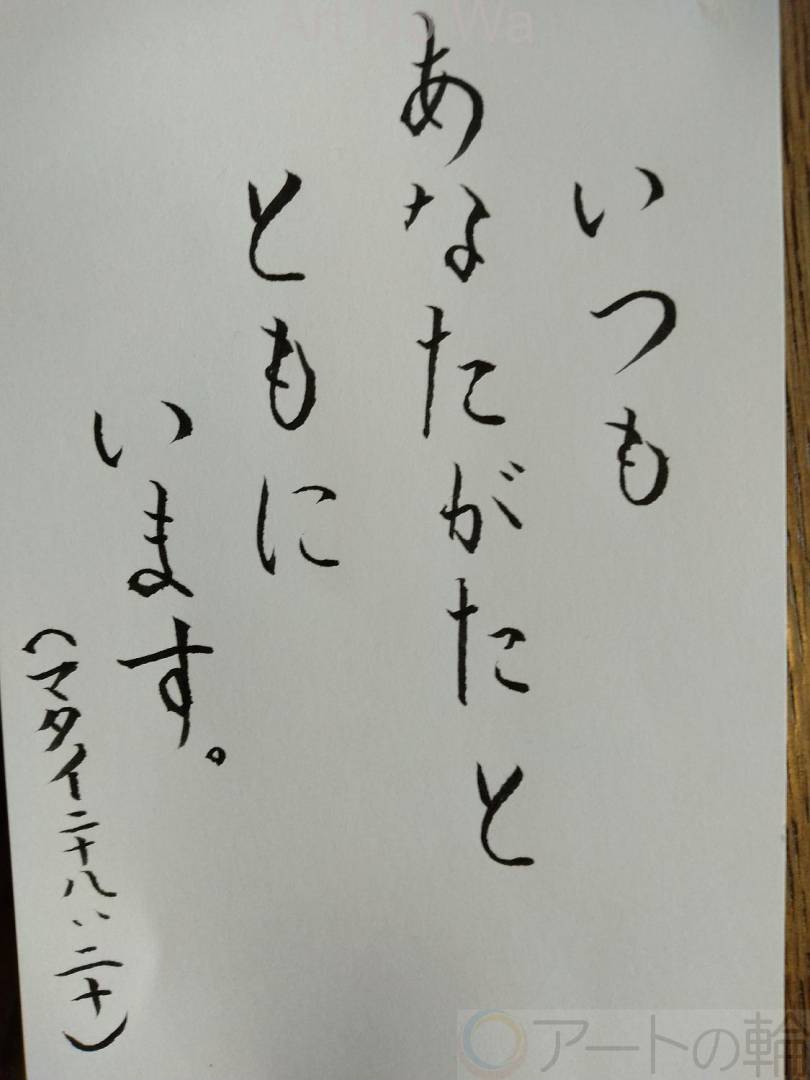 いつも
あなたがたと
ともに
います。
（マタイ二十八：二十）
Art no Wa
アートの輪